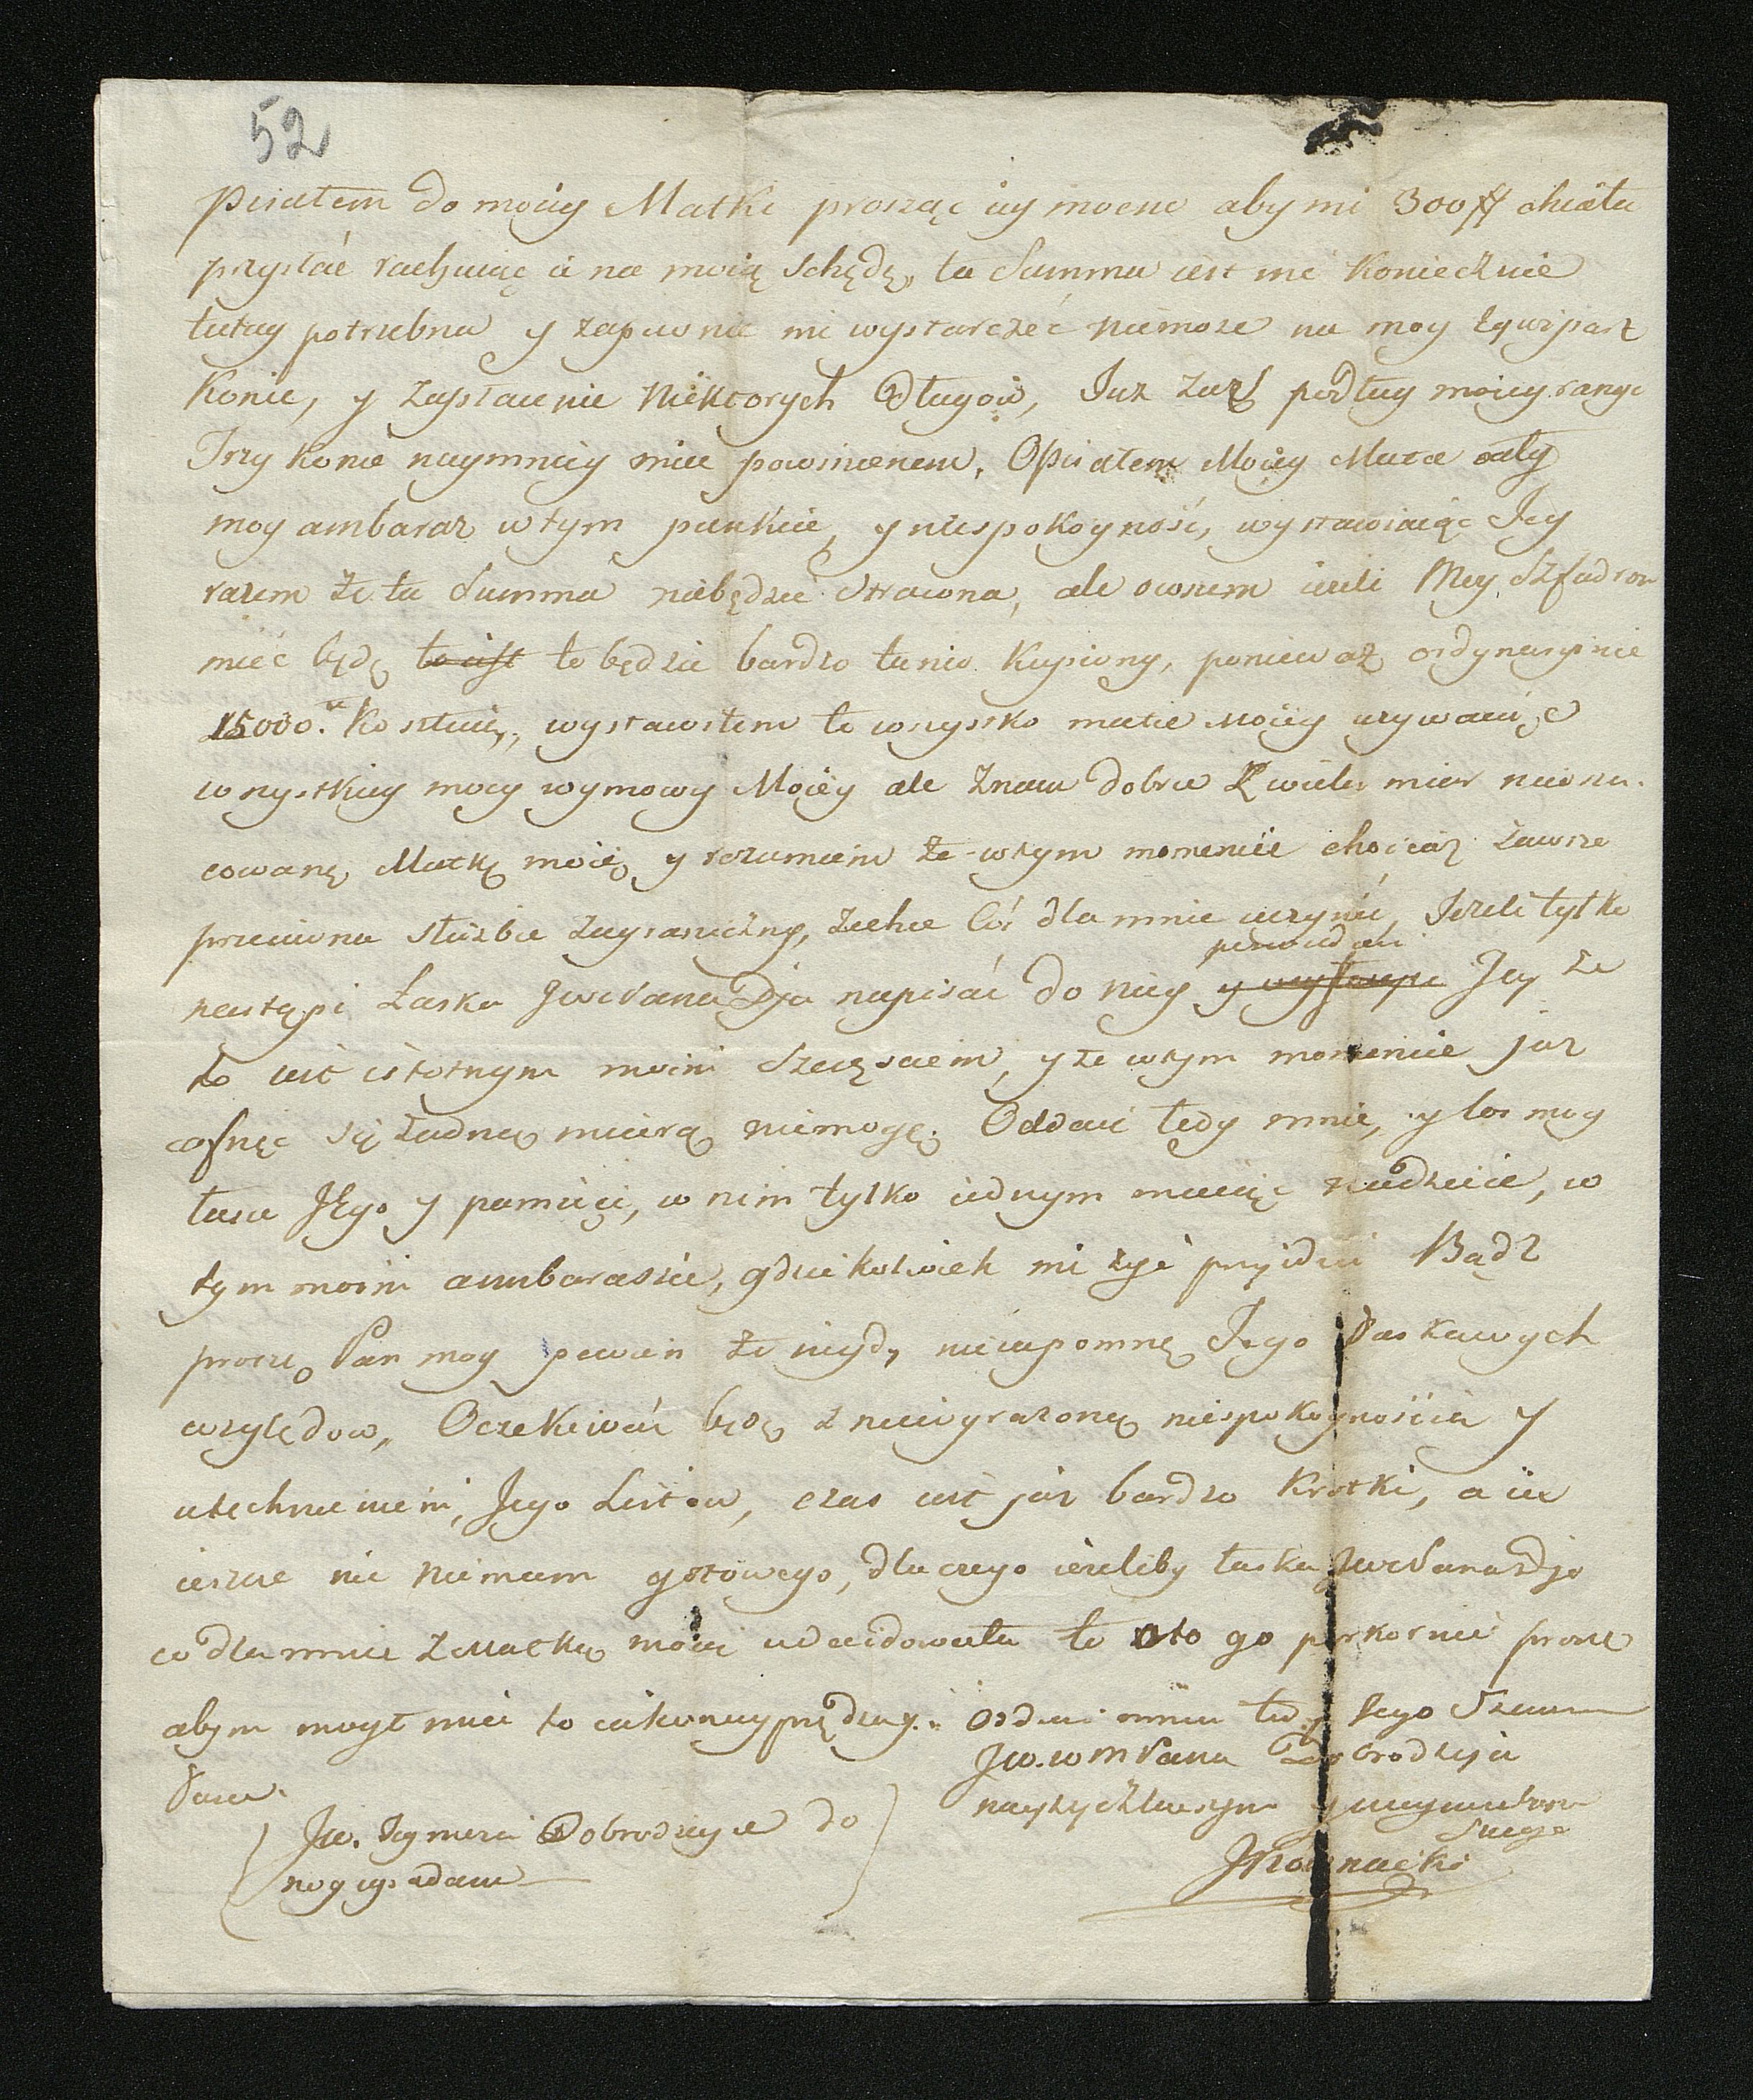 52
Pisałem do moiey Matki prosząc iey mocno aby mi 300 # chciała
przysłać rachuiąc ia na moię schędę, ta Summa iest mi koniecznie
tutay potrzebna y zapewnie mi wystarczeć niemoże na moy Equipaż
Konie, y zapłacenie Niektorych Długow, Już zaraz podług moiey rangi
Trzy konie naymniey miec powinienem, Opisałem Moiey Matce cały
moy ambaras w tym punkcie, y niespokoyność, wystawiaiąc Jey
razem że ta Summa niebędzie stracona, ale owszem ieżeli Moy Szfadron
mieć będę to iest to będzie bardzo tanio kupiony, poniewaz ordynaryinie
15000. kosztuie, wystawiłem to wszystko matce Moiey używaiąc
wszystkiey mocy wymowy Moiey ale znam dobrze z wielu miar
Matkę moię y rozumiem że w tym momencie chociaż zawsze
przeciwna służbie zagraniczney, zechce Coś dla mnie uczynić, Jeżeli tylko
powiedzieć
nastąpi Łaska JWWPana Dja napisać do niey y Jey że
to iest istotnym moim Szczęściem, y że w tym momencie już
cofnąć się żadną miarą niemogę. Oddaię tedy mnie, y los moy
łasce JEgo y pamięci, w nim tylko iednym maiąc nadzieie, w
tym moim ambarasie, gdziekolwiek mi żyć przyidzie Bądź
proszę Pan moy pewien że nigdy niezapomnę Jego Łaskawych
względow, Oczekiwać będę z niewyrażoną niespokoynością y
utęchnieniem, Jego Listow, czas iest już bardzo krotki, a ia
ieszcze nic niemam gotowego, dla czego ieżeliby łaska JWWPana Dja
co dla mnie z Matką moią udecidowała to oto go pokornie proszę
abym mogł mieć to iak nayprędzey. Oddaię mnie tedy Jego
JW. WMPana Dobrodzieja
nayżyczliwszym y
Sługa
JKownacki
JW. Jeymości Dobrodzieyce do
nog upadam